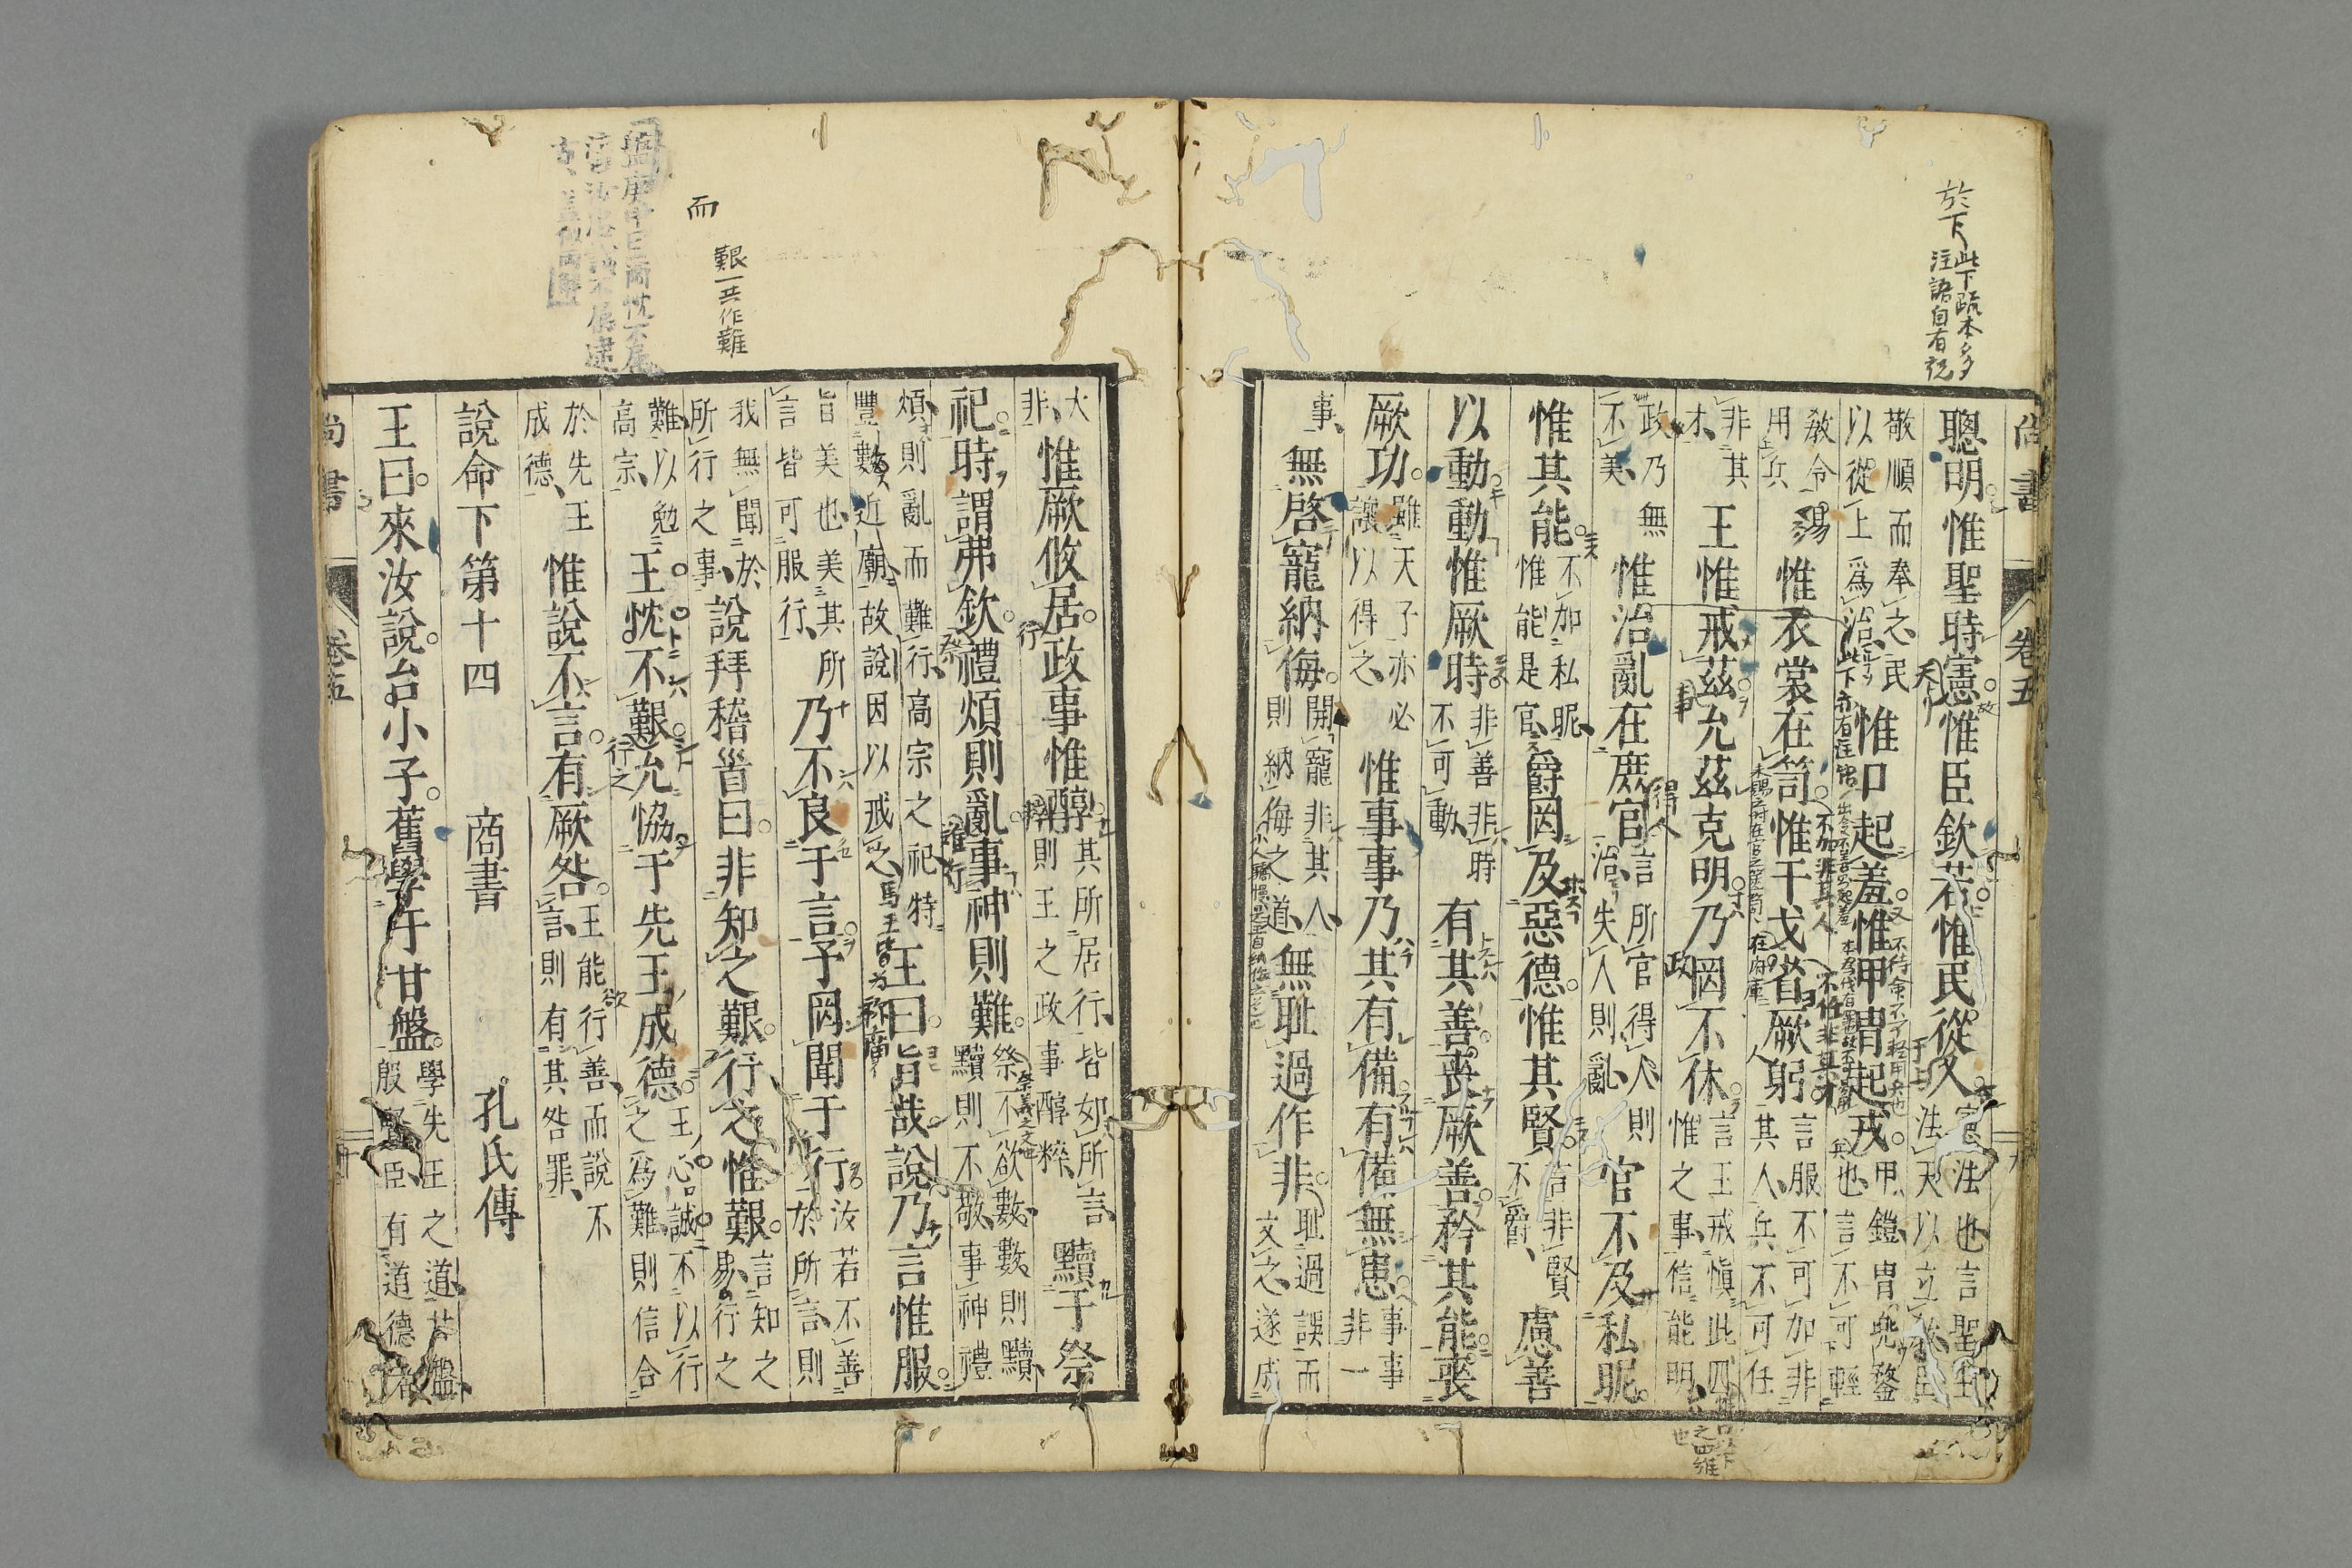 於下 此下疏本多
注語自有説
尚書
卷五
聰明惟聖時憲惟臣欽若惟民從乂
憲法也言聖王
法天以立教臣
敬順而奉之民
以從上爲治
惟口起羞惟甲冑起戎
甲鎧冑兜鍪
也言不可輕
教令易
用兵
惟衣裳在笥惟干戈省厥躬
言服不可加非
其人兵不可任
非其
才
王惟戒茲允茲克明乃罔不休
言王戒愼此四
惟之事信能明
政乃無
不美
惟治亂在庶官
言所官得人則
治失人則亂
官不及私昵
惟其能
不加私昵
惟能是官
爵罔及惡德惟其賢
言非賢
不爵
慮善
以動動惟厥時
非善非時
不可動
有其善喪厥善矜其能喪
厥功
雖天子亦必
讓以得之
惟事事乃其有備有備無患
事事
非一
事
無啓寵納侮
開寵非其人
則納侮之道
無耻過作非
耻過誤而
文之遂成
大
非
惟厥攸居政事惟醇
其所居行皆如所言
則王之政事醇粹
黷于祭
祀時謂弗欽禮煩則亂事神則難
祭不欲數數則黷
黷則不敬事神禮
煩則亂而難行高宗之祀特
豐數近廟故說因以戒之
王曰旨哉說乃言惟服
旨美也美其所
言皆可服行
乃不良于言予罔聞于行
汝若不善
於所言則
我無聞於
所行之事
說拜稽首曰非知之艱行之惟艱
言知之
易行之
難以勉
高宗
王忱不艱允協于先王成德
王心誠不以行
之爲難則信合
於先王
成德
惟說不言有厥咎
王能行善而說不
言則有其咎罪
說命下第十四 商書 孔氏傳
王曰來汝說台小子舊學于甘盤
學先王之道甘盤
殷賢臣有道德者
尚書
卷五
而
艱一共作難